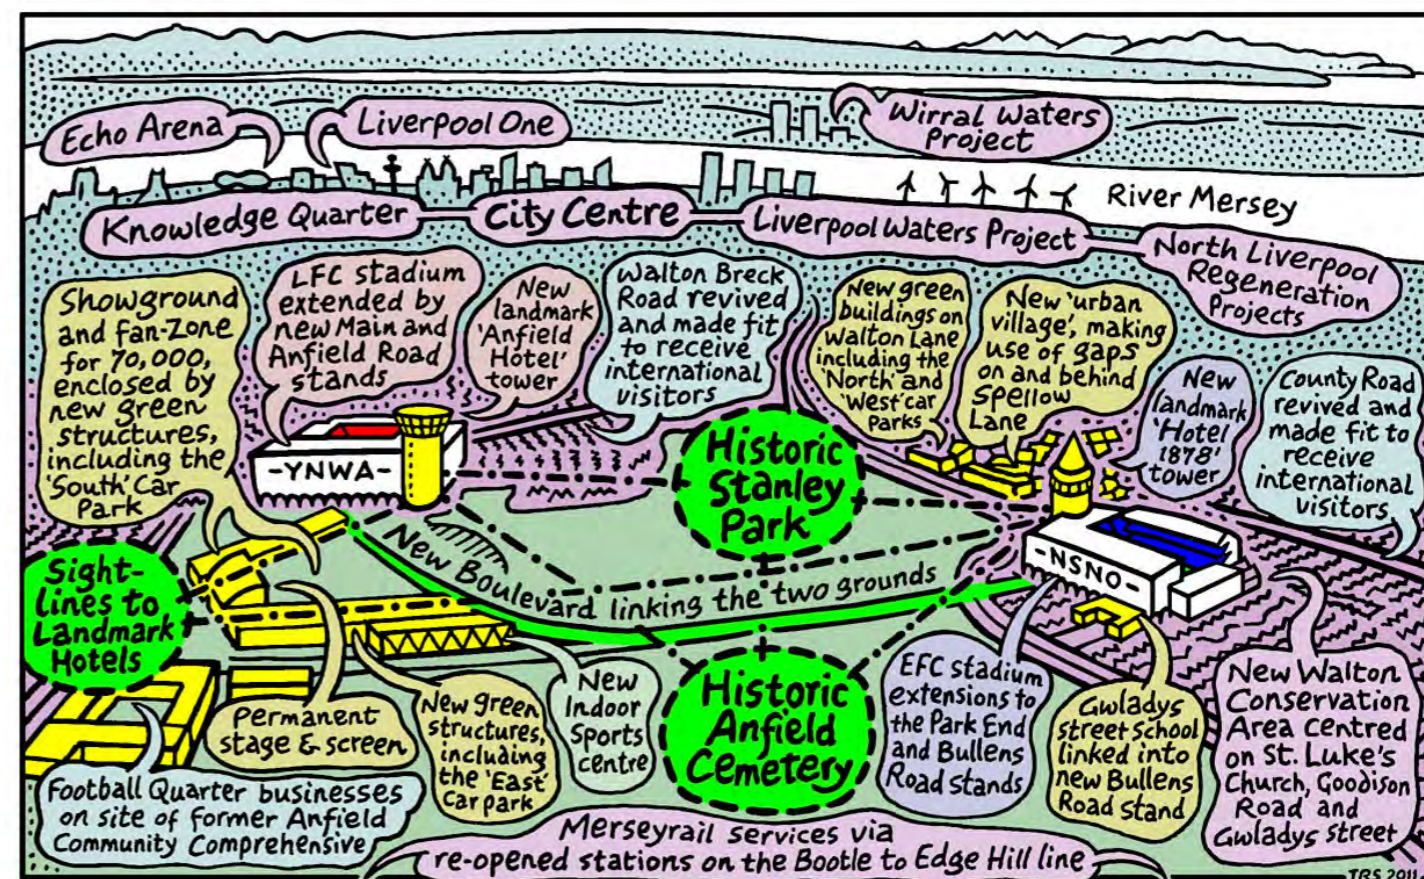 Echo Arena
Liverpool One
Wirral Waters
Project
River Mersey
Knowledge Quarter
City Centre
Liverpool Waters Project
North Liverpool
Regeneration
Projects
Showground
and fan-zone
for 70,000,
enclosed by
new green
structures,
including the
'South' Car
Park
LFC stadium
extended by
new Main and
Anfield Road
stands
New
landmark
'Anfield
Hotel'
tower
Walton Breck
Road revived
and made fit
to receive
international
visitors
New green
buildings on
Walton Lane
including the
'North' and
'West' car
Parks
New 'urban
village', making
use of gaps
on and behind
Spellow
Lane
New
landmark
'Hotel
1878'
tower
County Road
revived and
made fit to
receive
international
visitors
-YNWA-
Historic
Stanley
Park
-NSNO-
New Boulevard linking the two grounds
Sight-
lines to
Landmark
Hotels
Permanent
stage & screen
New green
structures,
including
the 'East'
Car park
New
Indoor
Sports
centre
Historic
Anfield
Cemetery
EFC stadium
extensions to
the Park End
and Bullens
Road stands
Gwladys
street school
linked into
new Bullens
Road stand
New Walton
Conservation
Area Centred
on St. Luke's
Church, Goodison
Road and
Gwladys street
Football Quarter businesses
on site of former Anfield
Community Comprehensive
Merseyrail services via
re-opened stations on the Bootle to Edge Hill line
TRS 2011